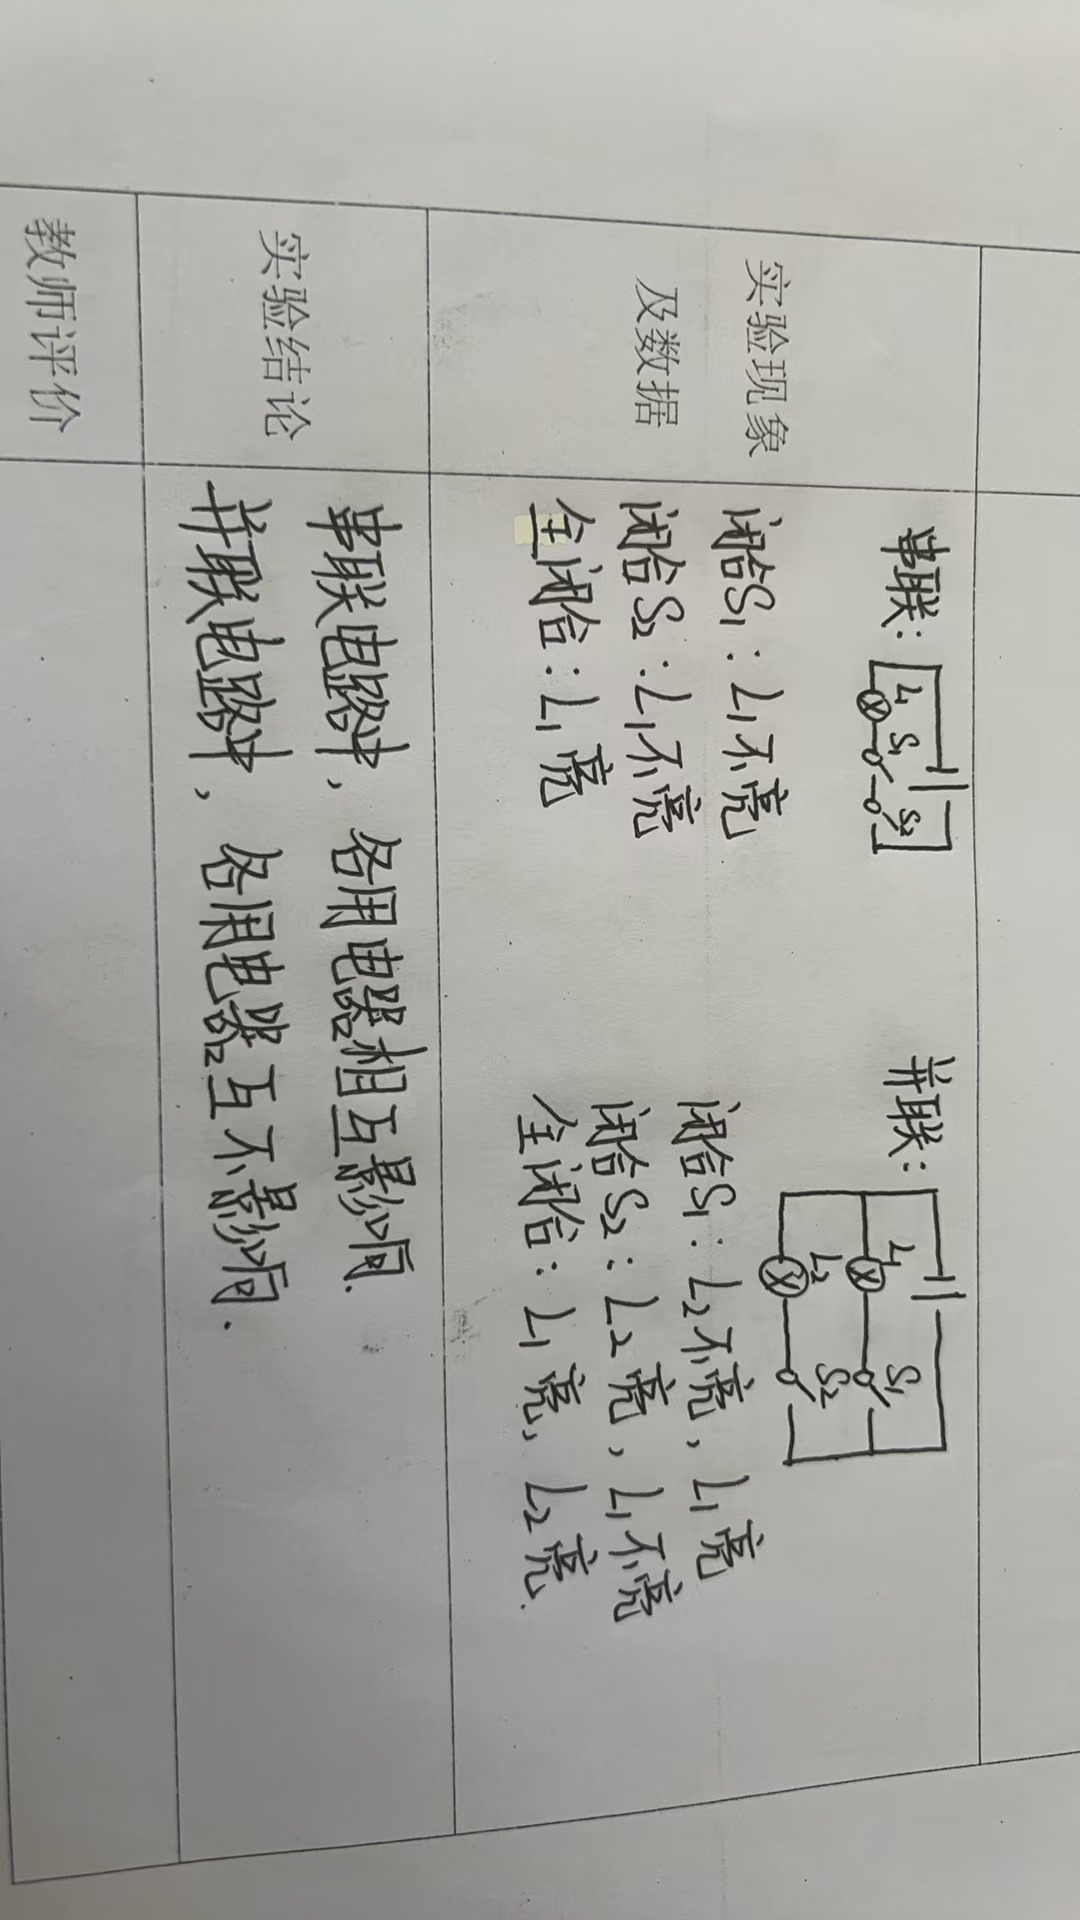 实验现象
及数据
串联：
L₁ S₁ S₂
闭合S₁：L₁不亮
闭合S₂：L₁不亮
全闭合：L₁亮
并联：
L₁ S₁
L₂ S₂
闭合S₁：L₂不亮，L₁亮
闭合S₂：L₂亮，L₁不亮
全闭合：L₁亮，L₂亮.
实验结论
串联电路中，各用电器相互影响.
并联电路中，各用电器互不影响.
教师评价